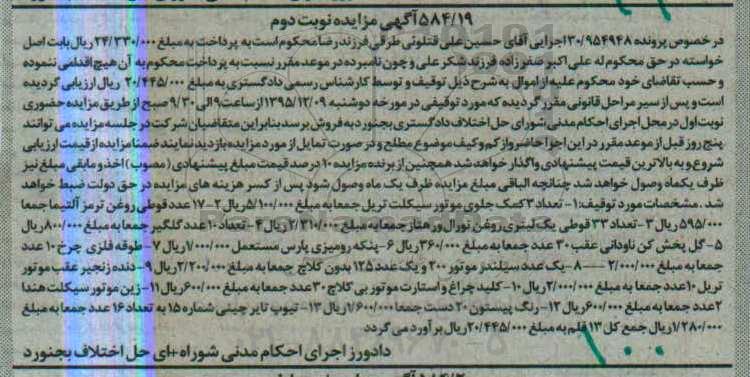 ۵۸۴/۱۹ آگهی مزایده نوبت دوم
در خصوص پرونده ۳۰/۹۵۴۹۴۸ اجرایی آقای حسین علی قتلوئی طرقی فرزند رضا محکوم است به پرداخت به مبلغ ۲۴/۳۳۰/۰۰۰ ریال بابت اصل
خواسته در حق محکوم له علی اکبر صفرزاده فرزند شکر علی و چون نامبرده در موعد مقرر نسبت به پرداخت محکوم به آن هیچ اقدامی ننموده
و حسب تقاضای خود محکوم علیه از اموال به شرح ذیل توقیف و توسط کارشناس رسمی دادگستری به مبلغ ۲۰/۴۴۵/۰۰۰ ریال ارزیابی گردیده
است و پس از سیر مراحل قانونی مقرر گردیده که مورد توقیفی در مورخه دوشنبه ۱۳۹۵/۱۲/۰۹ از ساعت ۹ الی ۹/۳۰ صبح از طریق مزایده حضوری
نوبت اول در محل اجرای احکام مدنی شورای حل اختلاف دادگستری بجنورد به فروش برسد بنابراین متقاضیان شرکت در جلسه مزایده می توانند
پنج روز قبل از موعد مقرر در این اجرا حاضر و از کم و کیف موضوع مطلع و در صورت تمایل از مورد مزایده بازدید نمایند ضمنا مزایده از قیمت ارزیابی
شروع و به بالاترین قیمت پیشنهادی واگذار خواهد شد همچنین از برنده مزایده ۱۰ درصد قیمت مبلغ پیشنهادی (مصوب) اخذ و مابقی مبلغ نیز
ظرف یکماه وصول خواهد شد چنانچه الباقی مبلغ مزایده ظرف یک ماه وصول شود پس از کسر هزینه های مزایده در حق دولت ضبط خواهد
شد. مشخصات مورد توقیف: ۱- تعداد ۳ کمک جلوی موتور سیکلت تریل جمعا به مبلغ ۵/۱۰۰/۰۰۰ ریال ۲- ۱۷ عدد قوطی روغن ترمز آلتیما جمعا
۵۹۵/۰۰۰ ریال ۳- تعداد ۳۳ قوطی یک لیتری روغن توراور هتاز جمعا به مبلغ ۲/۳۱۰/۰۰۰ ریال ۴- تعداد ۱۰ عدد گلگیر جمعا به مبلغ ۸۰۰/۰۰۰ ریال
۵- گل پخش کن ناودانی عقب ۳۰ عدد جمعا به مبلغ ۳۶۰/۰۰۰ ریال ۶- پنکه رومیزی پارس مستعمل ۱/۰۰۰/۰۰۰ ریال ۷- طوقه فلزی چرخ ۱۰ عدد
جمعا به مبلغ ۲/۰۰۰/۰۰۰ ۸- یک عدد سیلندر موتور ۲۰۰ و یک عدد ۱۲۵ بدون کلاچ جمعا به مبلغ ۲/۲۰۰/۰۰۰ ریال ۹- دنده زنجیر عقب موتور
تریل ۱۰ عدد جمعا به مبلغ ۲/۰۰۰/۰۰۰ ریال ۱۰- کلید چراغ و استارت موتور بی کلاچ ۳۰ عدد جمعا به مبلغ ۶۰۰/۰۰۰ ریال ۱۱- زین موتور سیکلت هندا
۲ عدد جمعا به مبلغ ۶۰۰/۰۰۰ ریال ۱۲- رنگ پیستون ۲۰ دست جمعا ۱/۶۰۰/۰۰۰ ریال ۱۳- تیوپ تایر چینی شماره ۱۵ به تعداد ۱۶ عدد جمعا به مبلغ
۱/۲۸۰/۰۰۰ ریال جمع کل ۱۳ قلم به مبلغ ۲۰/۴۴۵/۰۰۰ ریال برآورد می گردد
دادورز اجرای احکام مدنی شوراه+ای حل اختلاف بجنورد